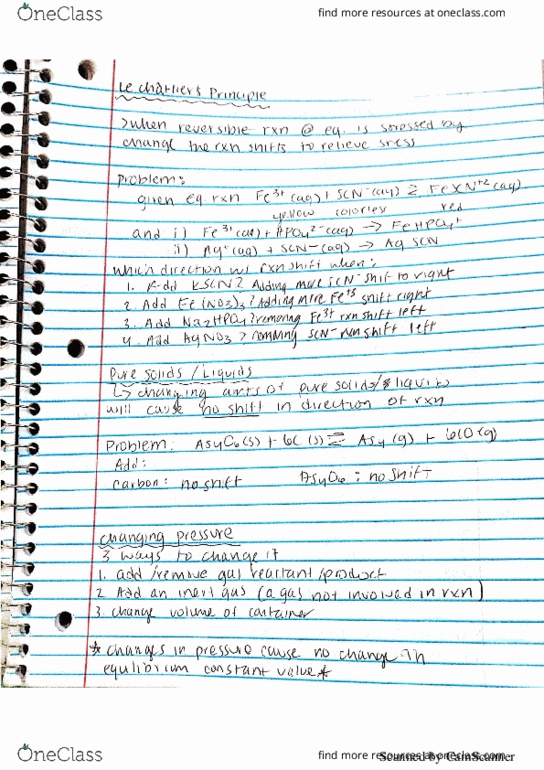 OneClass find more resources at oneclass.com
Le chatliers Principle
>when reversible rxn @ eq. is stressed by
change the rxn shifts to relieve sress
Problem:
given eq. rxn Fe3+ (aq) + SCN- (aq) ⇄ FeXN+2 (aq)
yellow colorless red
and i) Fe3+ (aq) + HPO42- (aq) → FeHPO4+
ii) Ag+ (aq) + SCN- (aq) → Ag SCN
which direction will rxn shift when:
1. Add KSCN? Adding more SCN- shift to right
2. Add Fe(NO3)3? Adding more Fe+3 shift right
3. Add Na2HPO4? removing Fe3+ rxn shift left
4. Add AgNO3 > removing SCN- rxn shift left
Pure solids / Liquids
↳ changing amts of pure solids/ liquids
will cause no shift in direction of rxn
Problem: As4O6(s) + 6C (s) ⇄ As4 (g) + 6CO (g)
Add:
carbon: no shift As4O6 : no shift
changing pressure
3 ways to change it
1. add /remove gas reactant /product
2 Add an inert gas (a gas not involved in rxn)
3. change volume of container
* changes in pressure cause no change in
equilibrium constant value *
OneClass find more resources at oneclass.com
Scanned by CamScanner